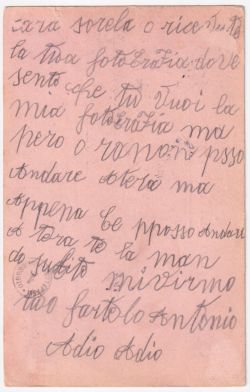 cara sorela o riceduto
la tua fotografia dove
sento che tu vuoi la
mia fotografia ma
pero o ra non psso
andare atera ma
appena Ce pposso andare
a tera te la man
do subito
mivirmo
tuo fartolo Antonio
Adio Adio